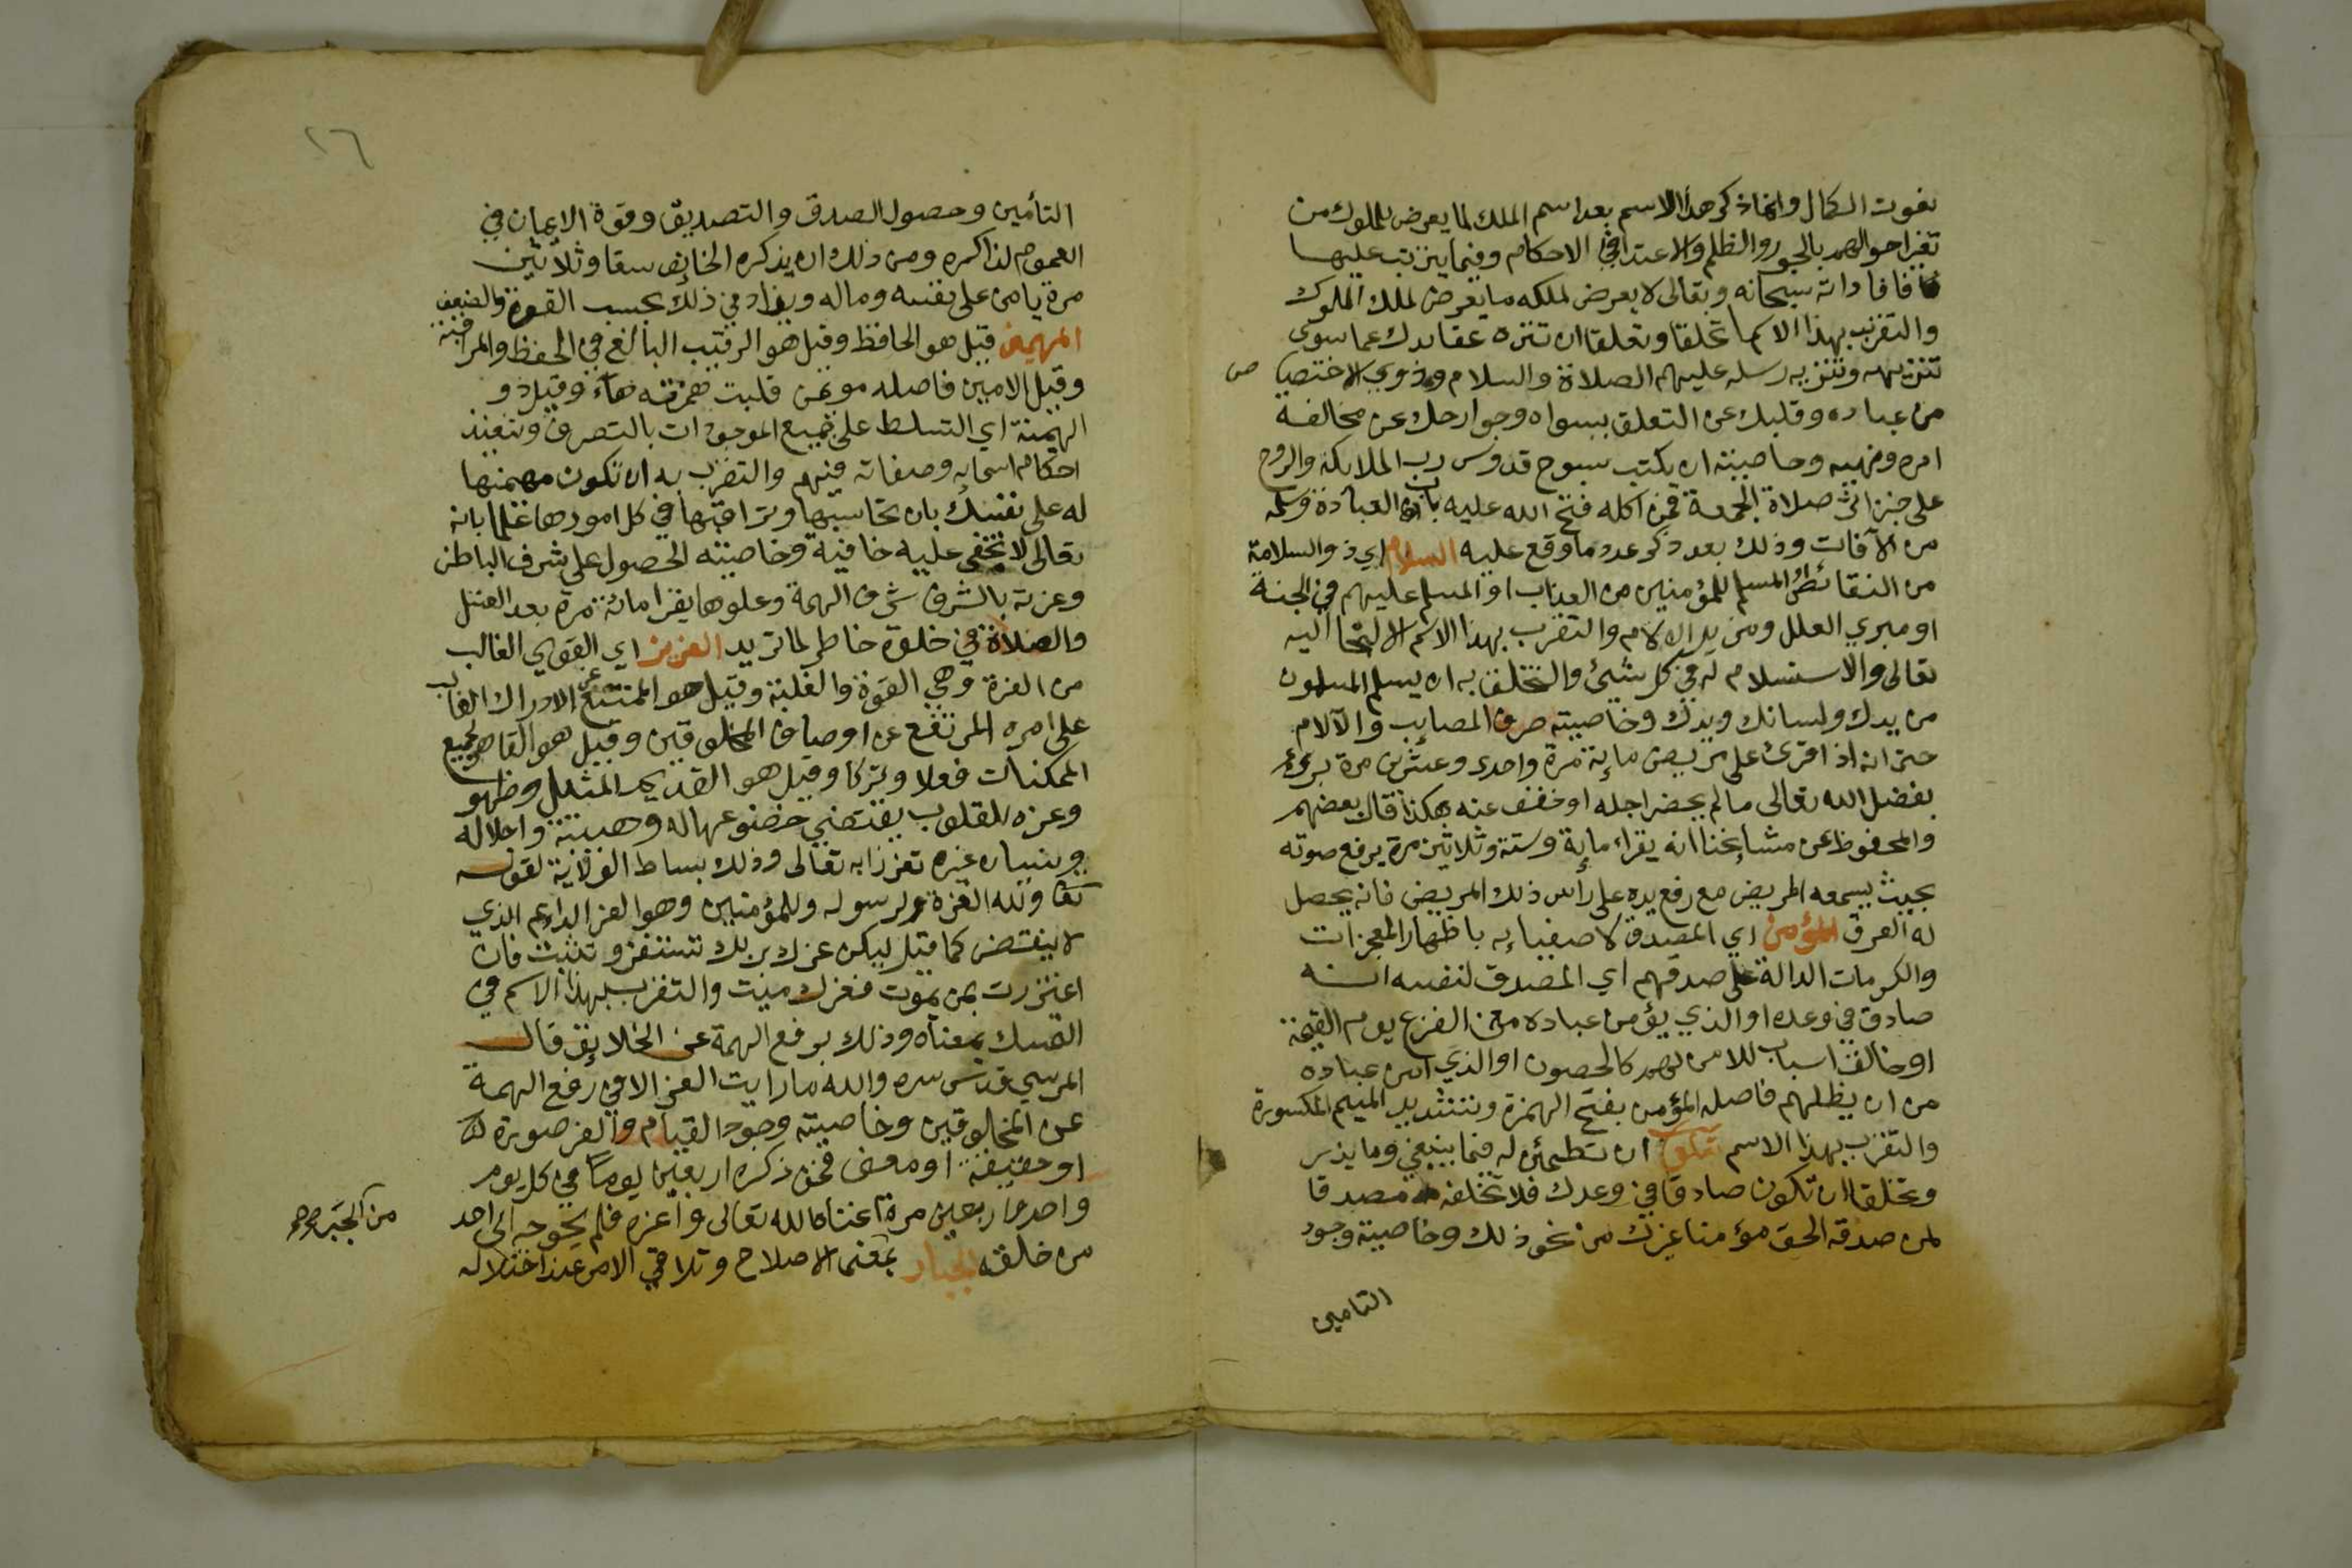 نعوت الكمال وانما ذكر هذا الاسم بعد اسم الملك لما يعرض للملوك من
تغير احوالهم بالجور والظلم والاعتدا في الاحكام وفيما يترتب عليها
فافاد انه سبحانه وتعالى لا يعرض لملكه ما يعرض لملك الملوك
والتقرب بهذا الاسم تخلقا وتعلقا ان تنزه عقايدك عما سوى
تنزيهه وتنزيه رسله عليهم الصلاة والسلام وذوي الاختصا ص
من عباده وقلبك عن التعلق بسواه وجوارحك عن مخالفة
امره ونهيه وخاصيته ان يكتب سبوح قدوس رب الملايكة والروح
على خبز اثر صلاة الجمعة فمن اكله فتح الله عليه باب العبادة وسلمه
من الآفات وذلك بعد ذكر عدد ما وقع عليه السلام اي ذو السلامة
من النقائص المسلم للمؤمنين من العذاب او المسلم عليهم في الجنة
او مبري العلل ومزيل الالام والتقرب بهذا الاسم الالتجا اليه
تعالى والاستسلام له في كل شيئ والتخلق به ان يسلم المسلمون
من يدك ولسانك ويدك وخاصيته صرف المصايب والآلام
حتى انه اذا قرئ على مريض ماية مرة واحدى وعشرين مرة برئ
بفضل الله تعالى ما لم يحضر اجله او خفف عنه هكذا قال بعضهم
والمحفوظ عن مشايخنا انه يقراء ماية وستة وثلاثين مرة يرفع صوته
بحيث يسمعه المريض مع رفع يده على راس ذلك المريض فانه يحصل
له العرق المؤمن اي المصدق لاصفيايه باظهار المعجزات
والكرمات الدالة على صدقهم اي المصدق لنفسه انه
صادق في وعده او الذي يؤمن عباده من الفزع يوم القيمة
او خالق اسباب للامن لهم كالحصون او الذي امن عباده
من ان يظلهم فاصله المؤمن بفتح الهمزة وتشديد الميم المكسورة
والتقرب بهذا الاسم ان تطمئن له فيما ينبغي وما يذر
وتخلقا ان تكون صادقا في وعدك فلا تخلفه مصدقا
لمن صدقه الحق مؤمنا غيرك من نحو ذلك وخاصيته وجود
التامين
٢٦
التأمين وحصول الصدق والتصديق وقوة الايمان في
العموم لذاكره ومن ذلك ان يذكره الخايف ستا وثلاثين
مرة يامن على نفسه وماله ويزاد في ذلك بحسب القوة والضعف
المهيمن قيل هو الحافظ وقيل هو الرقيب البالغ في الحفظ والمراقبة
وقيل الامين فاصله موئمن قلبت همزته هاء وقيل ذو
الهيمنة اي التسلط على جميع الموجودات بالتصرف وتنفيذ
احكام اسمايه وصفاته فيهم والتقرب به ان تكون مهيمنها
له على نفسك بان تحاسبها وتراقبها في كل امورها علما بانه
تعالى لا تخفى عليه خافية وخاصيته الحصول على شرف الباطن
وعزته بالشرف شرف الهمة وعلوها يقرا مائة مرة بعد الغسل
والصلاة في خلوة خاطر لما تريد العزيز اي القوي الغالب
من العزة وهي القوة والغلبة وقيل هو الممتنع عن الادراك الغالب
على امره المرتفع عن اوصاف المخلوقين وقيل هو القاهر لجميع
الممكنات فعلا وتركا وقيل هو القديم المثل وظهو
وعزه للقلوب يقتضي خضوعها له وهيبته واجلاله
ونسيان غيره تعززا به تعالى وذلك بساط لقوله
تعا ولله العزة ولرسوله وللمؤمنين وهو العز الدايم الذي
لا ينقضى كما قيل ليكن عزك بربك تستقر وتثبت فان
اعتززت بمن يموت فعزك ميت والتقرب بهذا الاسم في
التمسك بمعناه وذلك برفع الهمة عن الخلايق قال
المرسي قدس سره والله ما رايت العز الا في رفع الهمة
عن المخلوقين وخاصيته وجود القيام والعز صورة
او حقيقة او معنى فمن ذكره اربعين يوما في كل يوم
واحد واربعين مرة اغناه الله تعالى واعزه فلم يحوجه الى احد
من خلقه الجبار بمعنى الاصلاح وتلافي الامر عند اختلاله
من الجبر